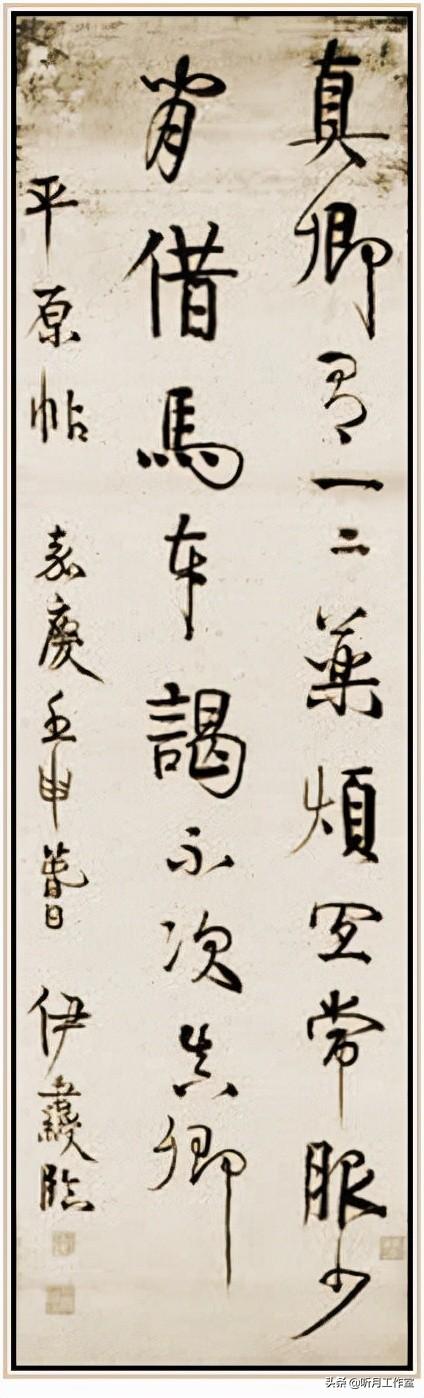 真卿有一二藥煩宜常服少
間借馬奉謁不次真卿
平原帖 嘉慶壬申 伊秉綬臨
头条 @听月工作室